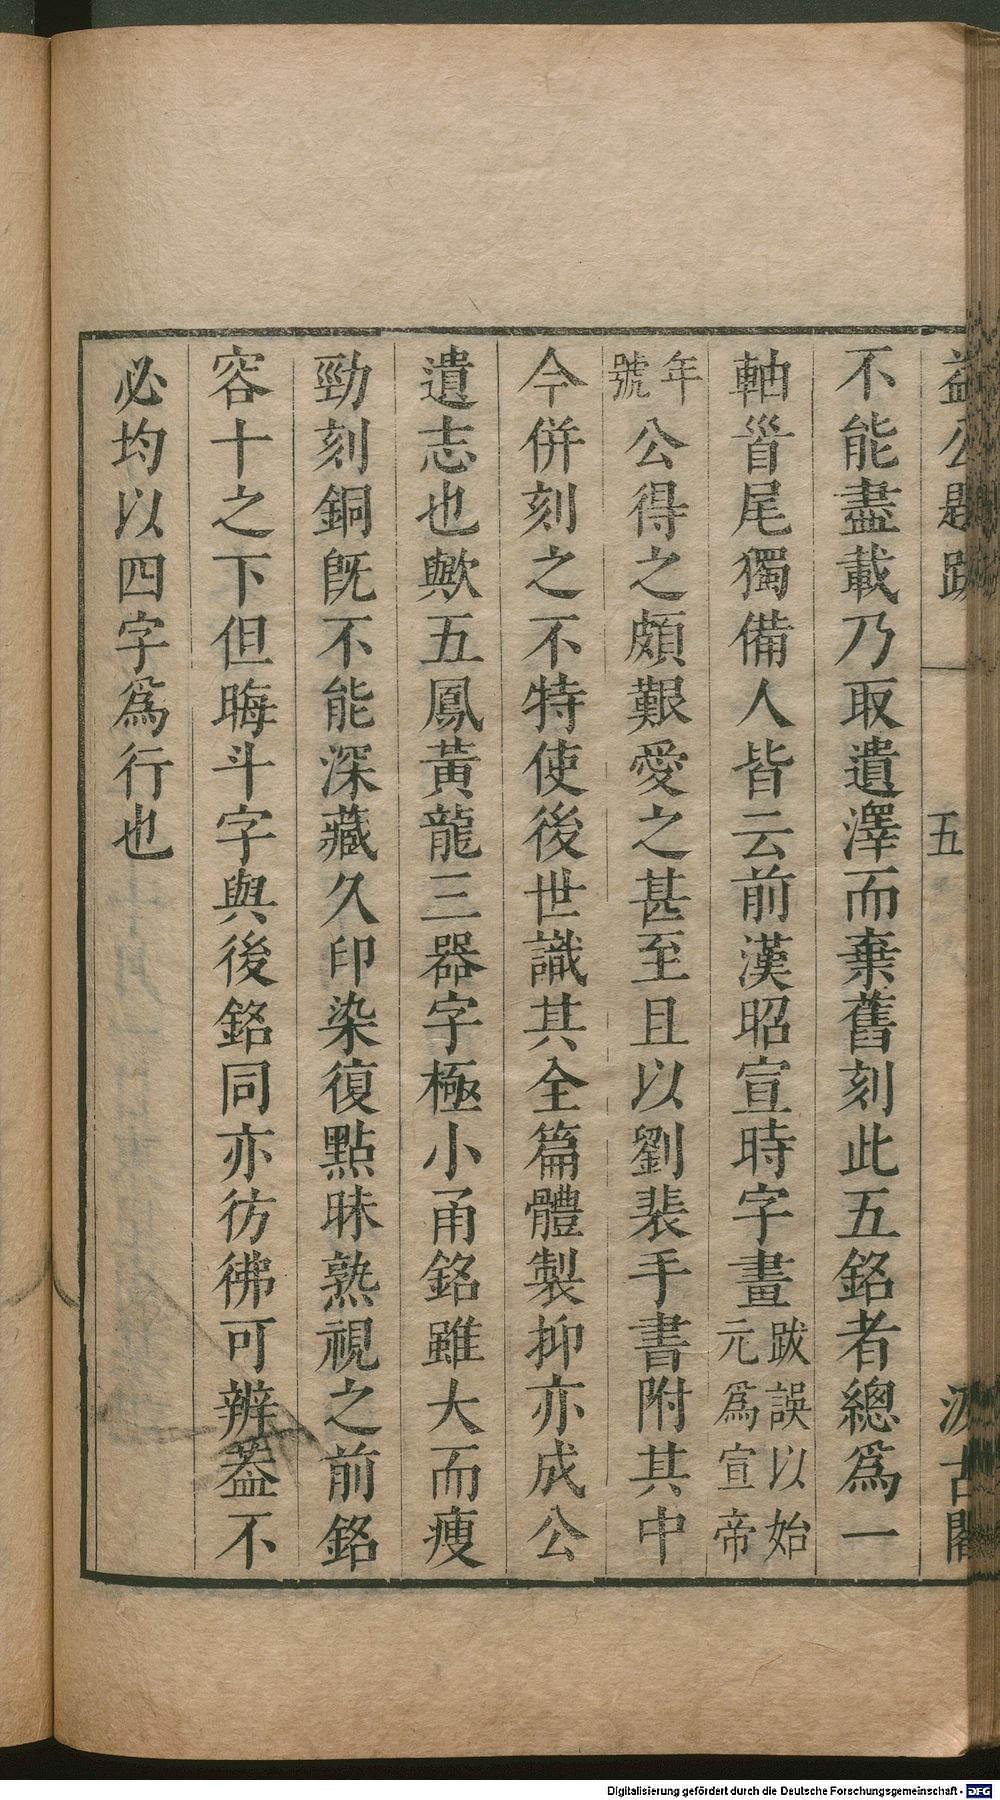 益公題跋 五 汲古閣
不能盡載乃取遺澤而棄舊刻此五銘者總爲一
軸首尾獨備人皆云前漢昭宣時字畫跋誤以始元爲宣帝
年號公得之頗艱愛之甚至且以劉裴手書附其中
今併刻之不特使後世識其全篇體製抑亦成公
遺志也歟五鳳黃龍三器字極小甬銘雖大而瘦
勁刻銅旣不能深藏久印染復點昧熟視之前銘
容十之下但晦斗字與後銘同亦彷彿可辨葢不
必均以四字爲行也
Digitalisierung gefördert durch die Deutsche Forschungsgemeinschaft - DFG